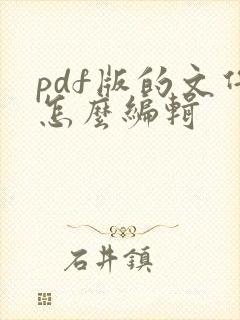 pdf版的文件
怎麼編輯
石井鎮